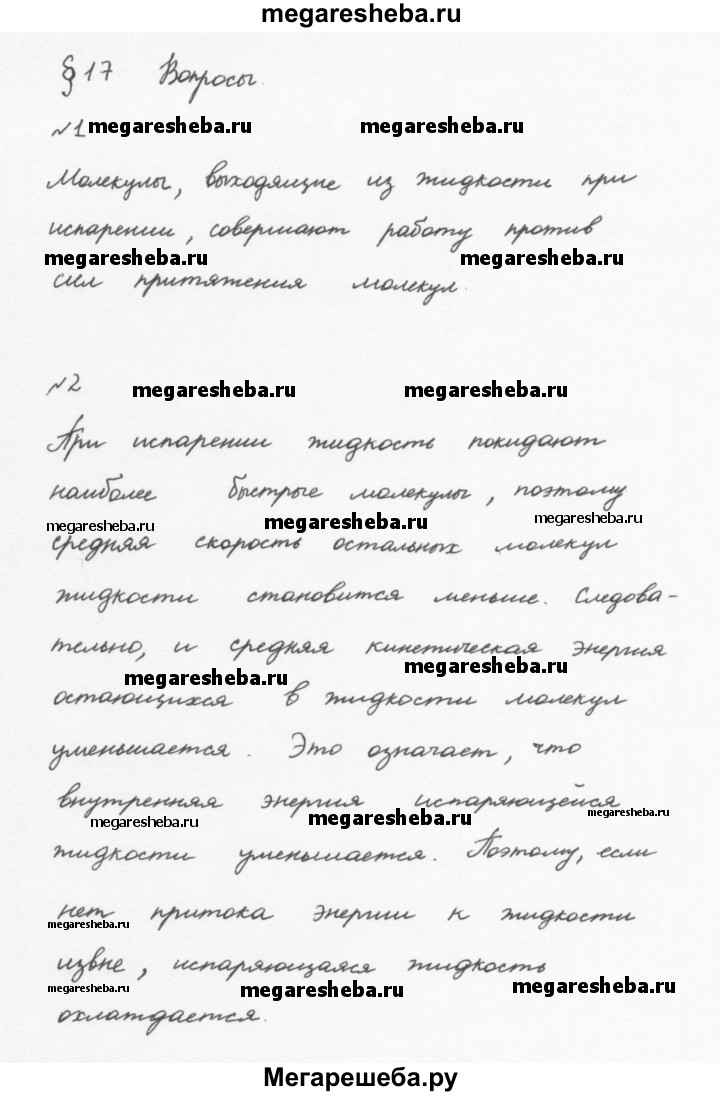 megaresheba.ru
§17 Вопросы.
№1 megaresheba.ru megaresheba.ru
Молекулы, выходящие из жидкости при
испарении, совершают работу против
megaresheba.ru megaresheba.ru
сил притяжения молекул.
№2 megaresheba.ru megaresheba.ru
При испарении жидкость покидают
наиболее быстрые молекулы, поэтому
megaresheba.ru megaresheba.ru megaresheba.ru
средняя скорость остальных молекул
жидкости становится меньше. Следова-
тельно, и средняя кинетическая энергия
megaresheba.ru megaresheba.ru
остающихся в жидкости молекул
уменьшается. Это означает, что
внутренняя энергия испаряющейся
megaresheba.ru megaresheba.ru megaresheba.ru
жидкости уменьшается. Поэтому, если
нет притока энергии к жидкости
megaresheba.ru
извне, испаряющаяся жидкость
megaresheba.ru megaresheba.ru megaresheba.ru
охлаждается.
Мегарешеба.ру